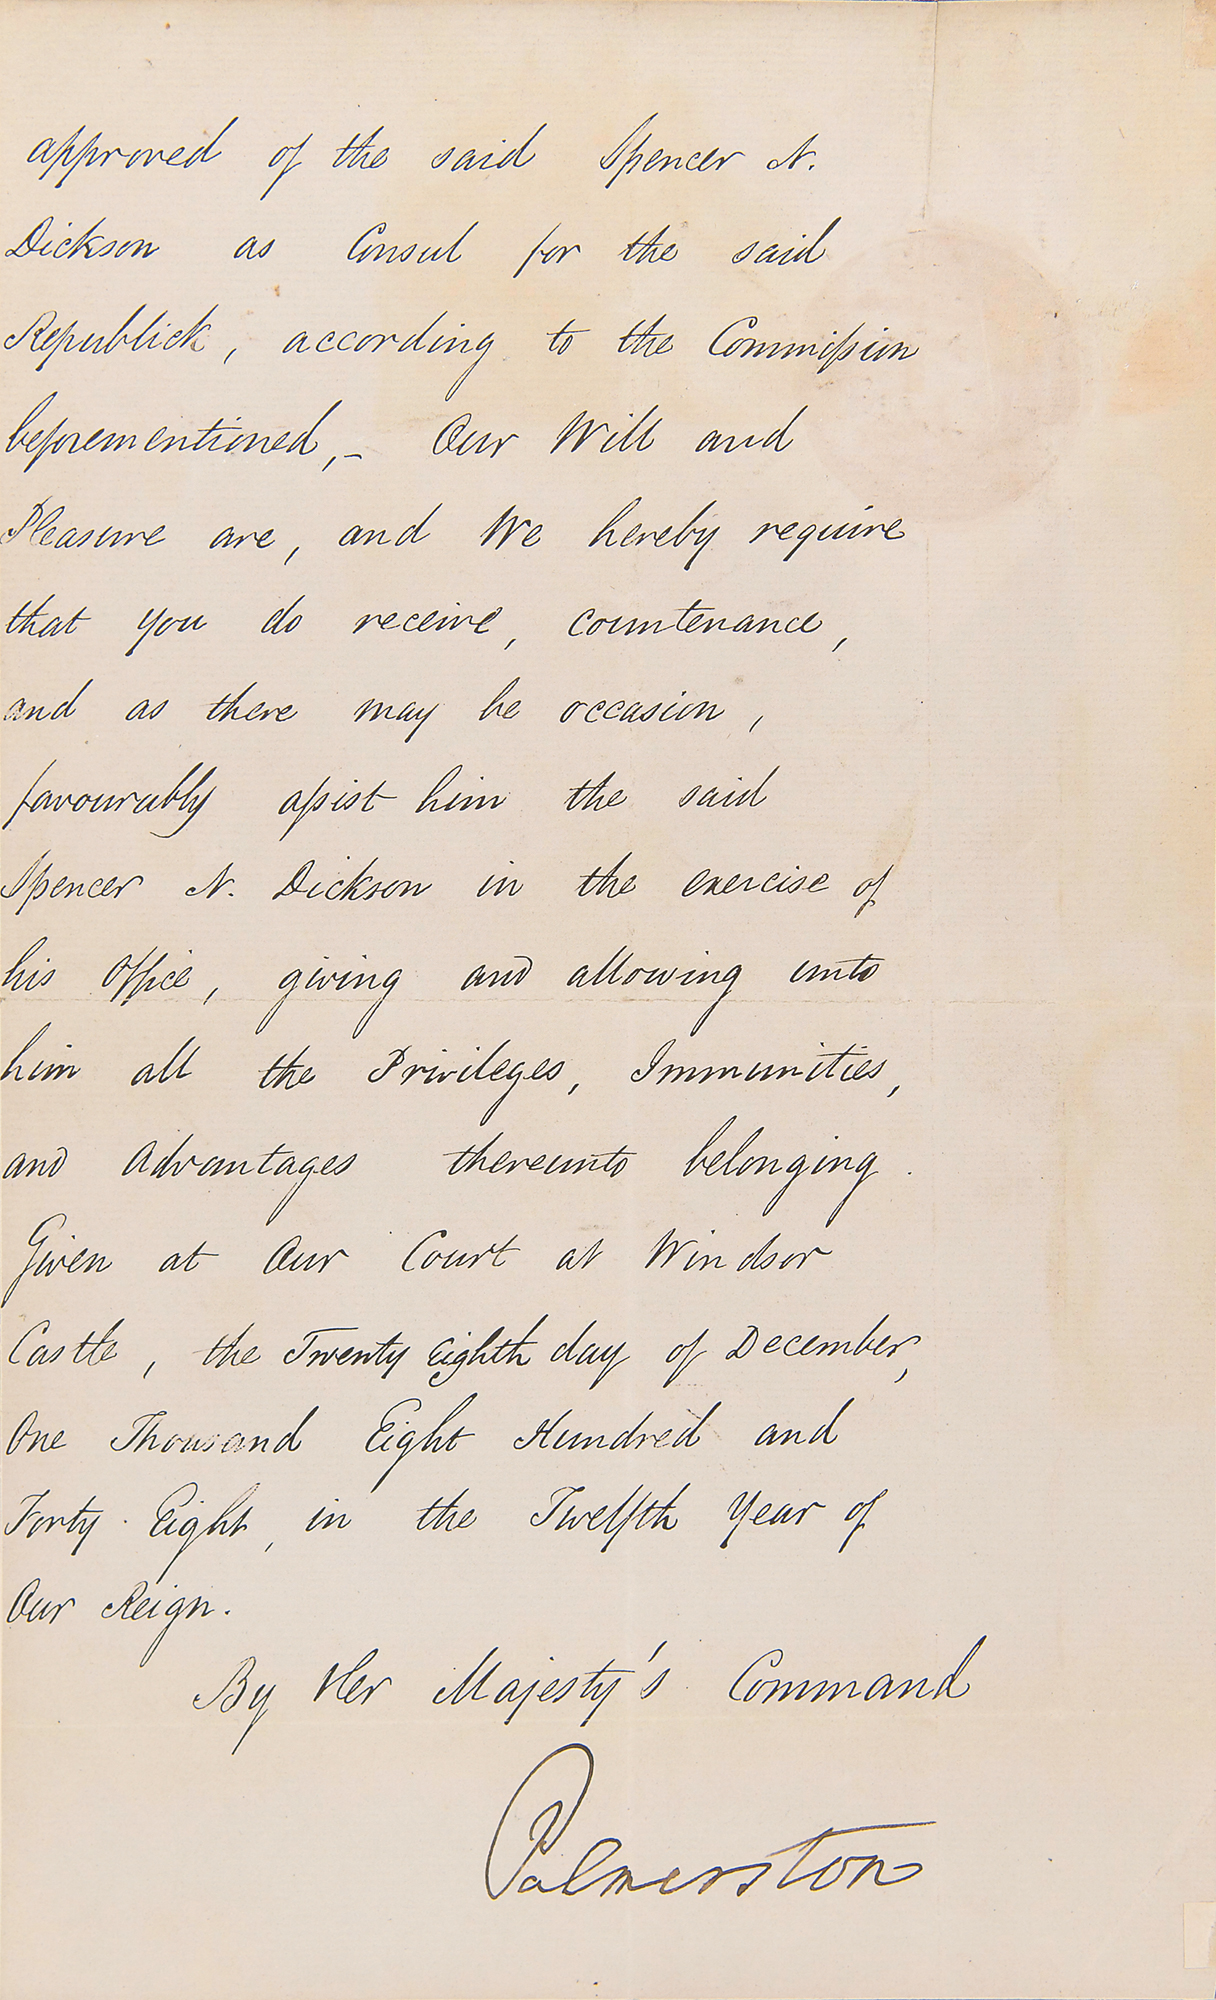 approved of the said Spencer N.
Dickson as Consul for the said
Republick, according to the Commiſsion
beforementioned,– Our Will and
Pleasure are, and We hereby require
that you do receive, countenance,
and as there may be occasion,
favourably aſsist him the said
Spencer N. Dickson in the exercise of
his Office, giving and allowing unto
him all the Privileges, Immunities,
and Advantages thereunto belonging.
Given at Our Court at Windsor
Castle, the Twenty Eighth day of December,
One Thousand Eight Hundred and
Forty Eight, in the Twelfth Year of
Our Reign.
By Her Majesty's Command
Palmerston